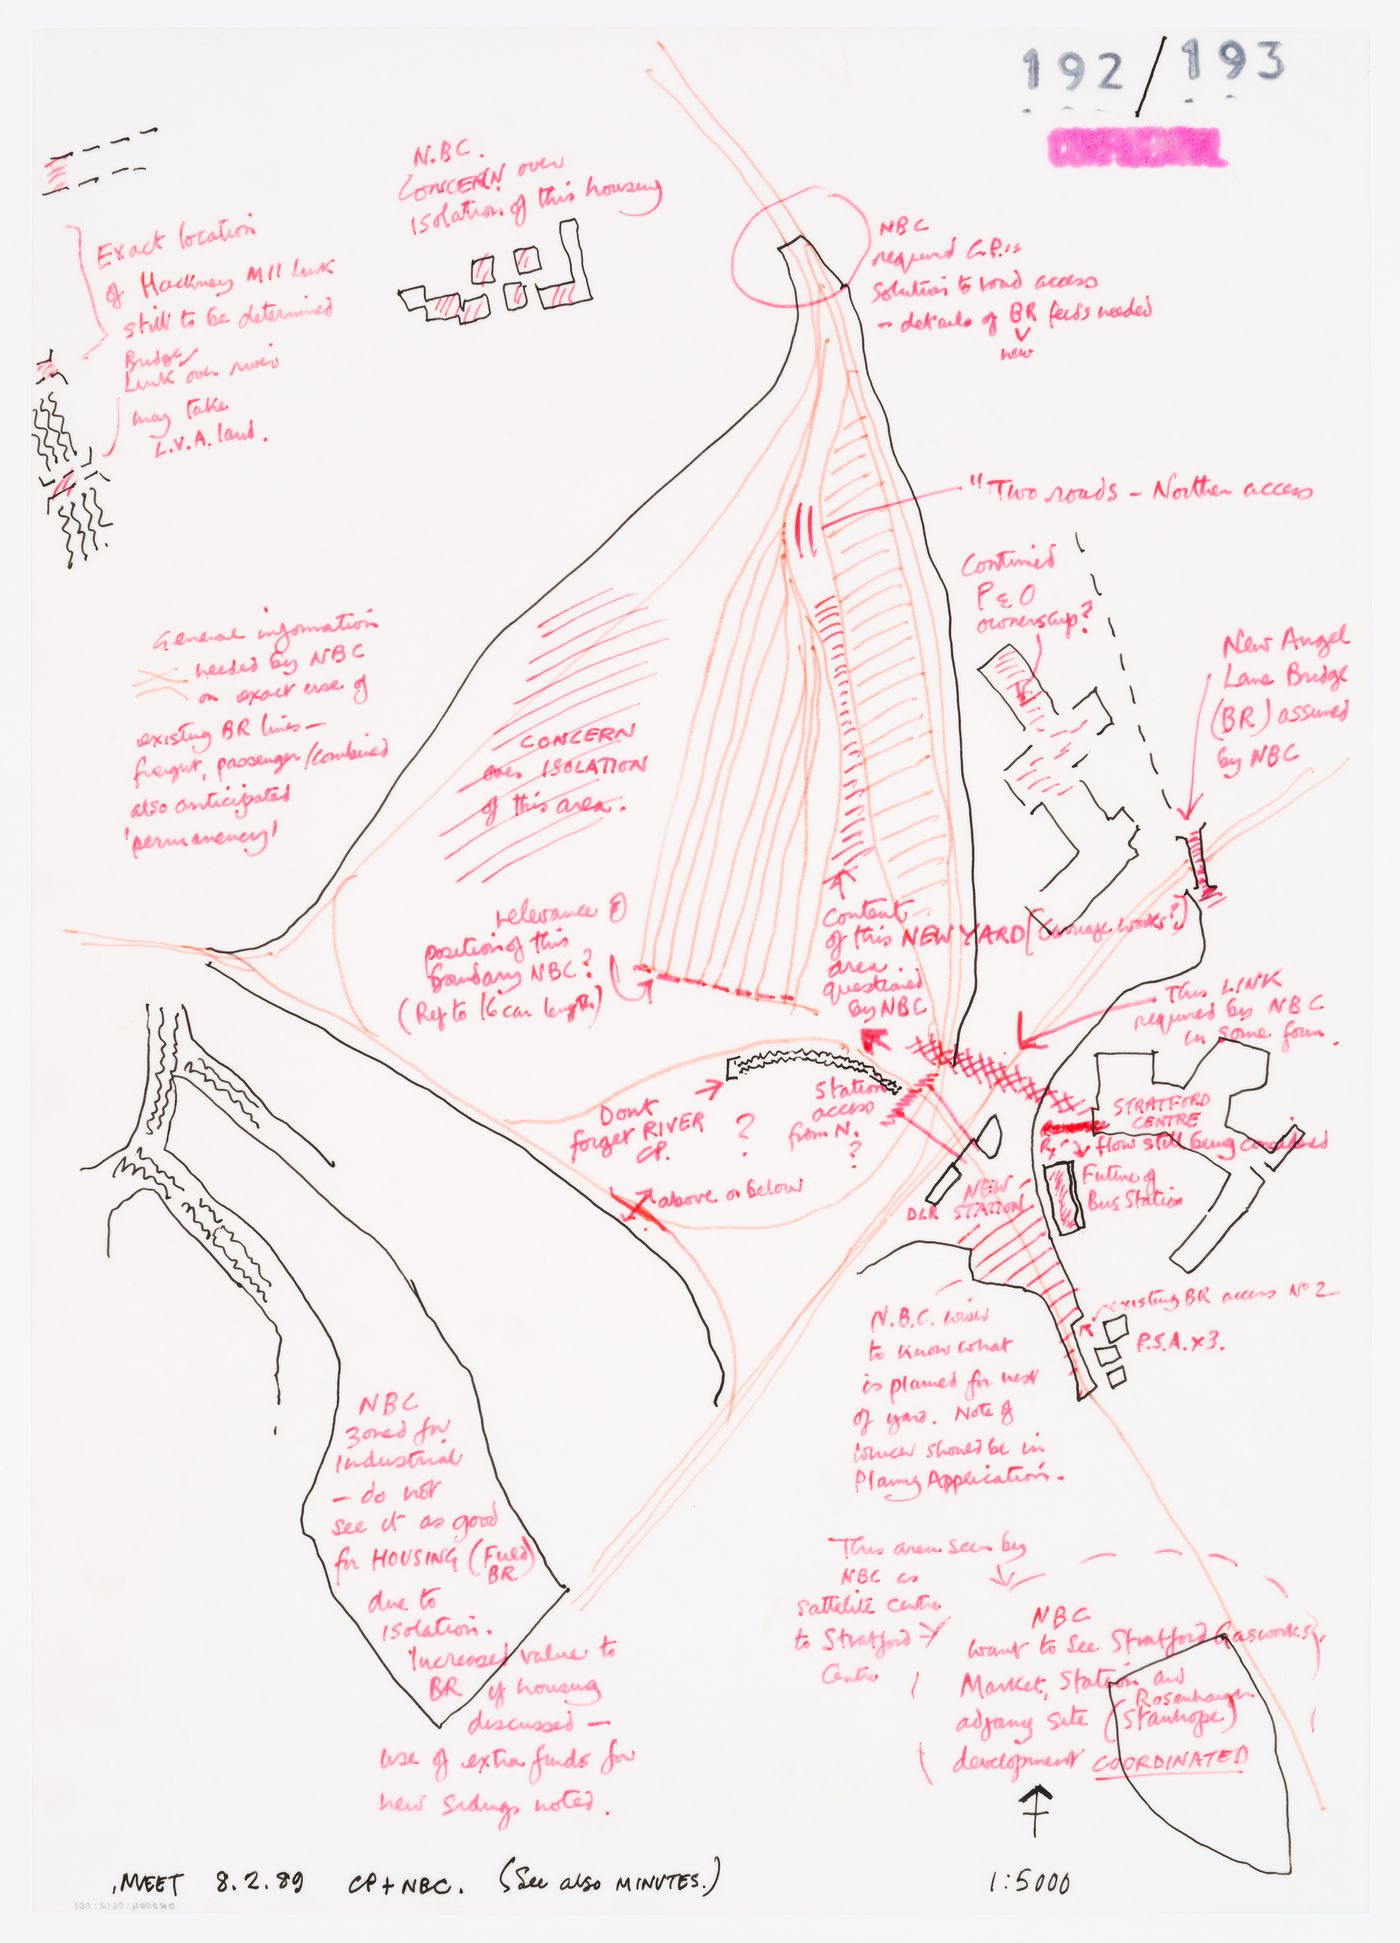 192/193
CONFIDENTIAL
N.B.C.
CONCERN over
isolation of this housing
Exact location
of Hackney M11 Link
still to be determined
Bridge
Link over river
may take
L.V.A. land.
NBC
required C.P.'s
solution to road access
- details of BR feeds needed
new
"Two roads - Northern access
Continued
P & O
ownership?
New Angel
Lane Bridge
(BR) assumed
by NBC
General information
needed by NBC
on exact use of
existing BR lines -
freight, passenger/combined
also anticipated
'permanency'
CONCERN
over ISOLATION
of this area.
relevance &
position of this
boundary NBC?
(Ref to 16 car length)
Content
of this
area
questioned
by NBC
NEW YARD [Carriage works?]
This LINK
required by NBC
in some form.
STRATFORD
CENTRE
flow still being considered
Future of
Bus Station
Dont
forget RIVER
CP.
?
Station
access
from N.
?
above or below
NEW
STATION
DLR
existing BR access No 2
P.S.A. x 3.
N.B.C. wised
to know what
is planned for rest
of yard. Note of
which should be in
Planng Application.
NBC
zoned for
industrial
- do not
see it as good
for HOUSING (Fuel)
BR
due to
isolation.
Increased value to
BR if housing
discussed -
use of extra funds for
new sidings noted.
This area seen by
NBC as
sattelite centre
to Stratford
Centre
NBC
want to see Stratford Gasworks,
Market, Station and
adjoing site (Rosenhaugh
Stanhope)
development COORDINATED
MEET 8.2.89 CP + NBC. (See also MINUTES.)
1:5000